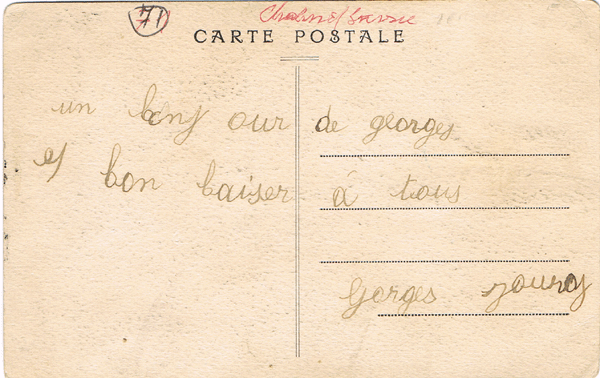 71
CARTE POSTALE
un bonj our de georges
et bon baiser à tous
Gorges